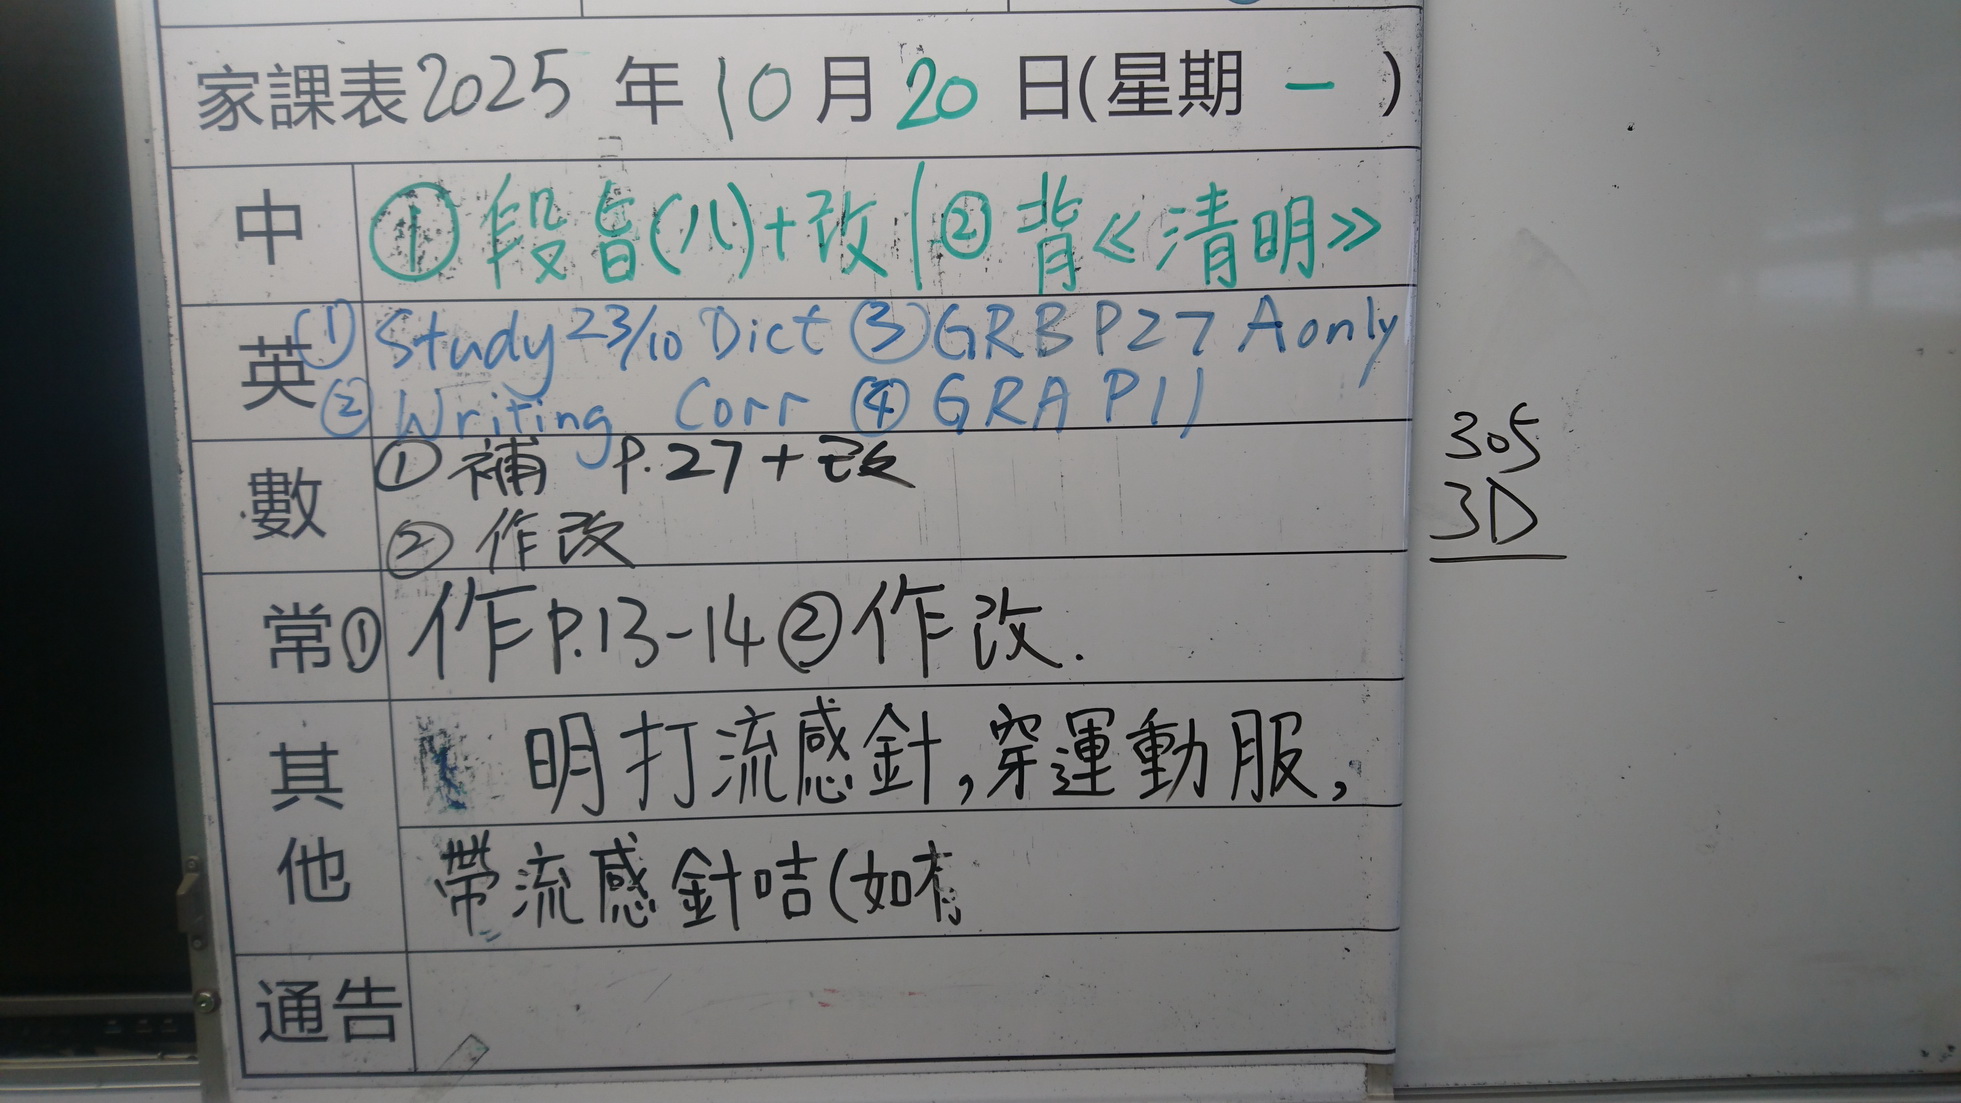 家課表2025年10月20日(星期一)
中 ①段旨(八)+改|②背《清明》
英 ① Study 23/10 Dict ③ GRB P27 A only
② Writing Corr ④ GRA P11
數 ①補 P.27+改
②作改
常 ①作P.13-14②作改.
其他 明打流感針,穿運動服,
帶流感針咭(如有
通告
305
3D